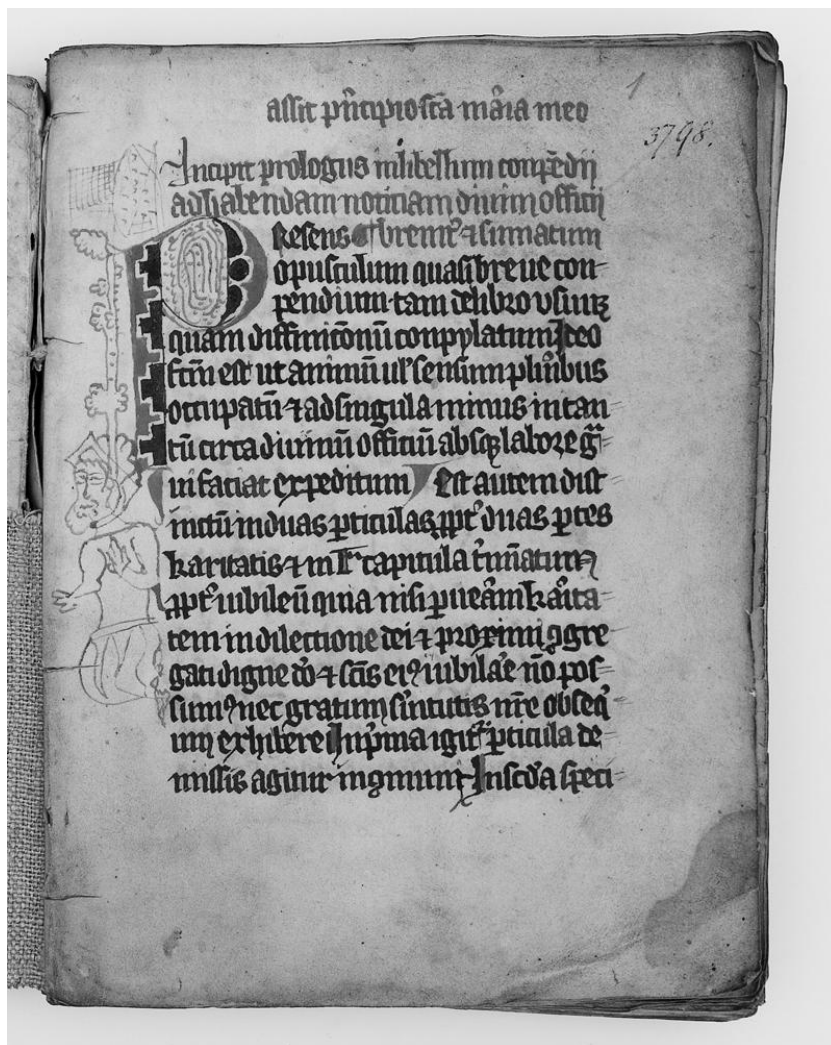 assit pncipio sca maia meo
1
3798.
Incipit prologus in libellum conpedij
ad habendam noticiam diuini officij
Resens breuit & sumatum
opusculum quasi breue con-
pendium tam de libro usuum
quam diffinitonu conpylatum Ideo
fcm est ut animu ul' sensum plibus
occupatu & ad singula minus intan-
tu circa diuinu officiu absq labore gra
ui faciat expeditum Est autem dist-
inctu in duas pticulas ppt duas ptes
karitatis & in capitula t'minatum
ppt iubileu quia nisi p ueam kaita-
tem in dilectione dei & proximi 9gre-
gati digne do & scis ei9 iubilae no pos-
sum9 nec gratum suitutis nre obseq-
ium exhibere In pma igit pticula de
missis agitur in 9muni In scda speci-